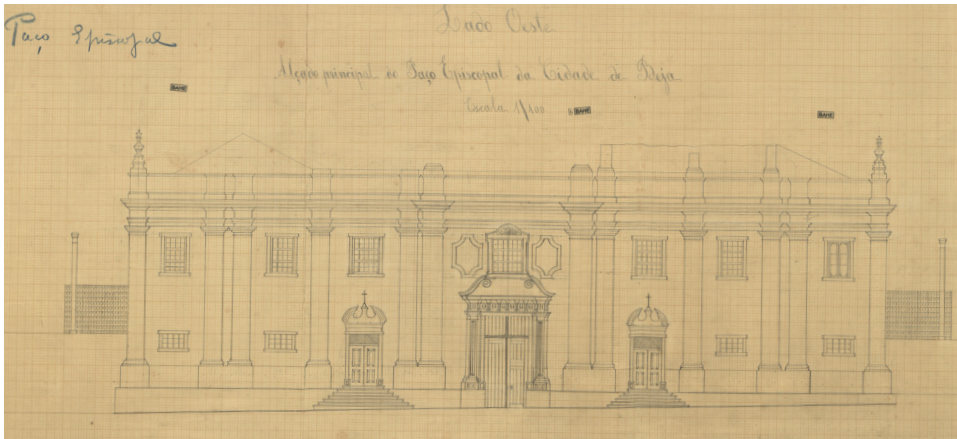 Paço Episcopal
Lado Oeste
Alçado principal do Paço Episcopal da Cidade de Beja
Escala 1/100
BAHE
BAHE
BAHE